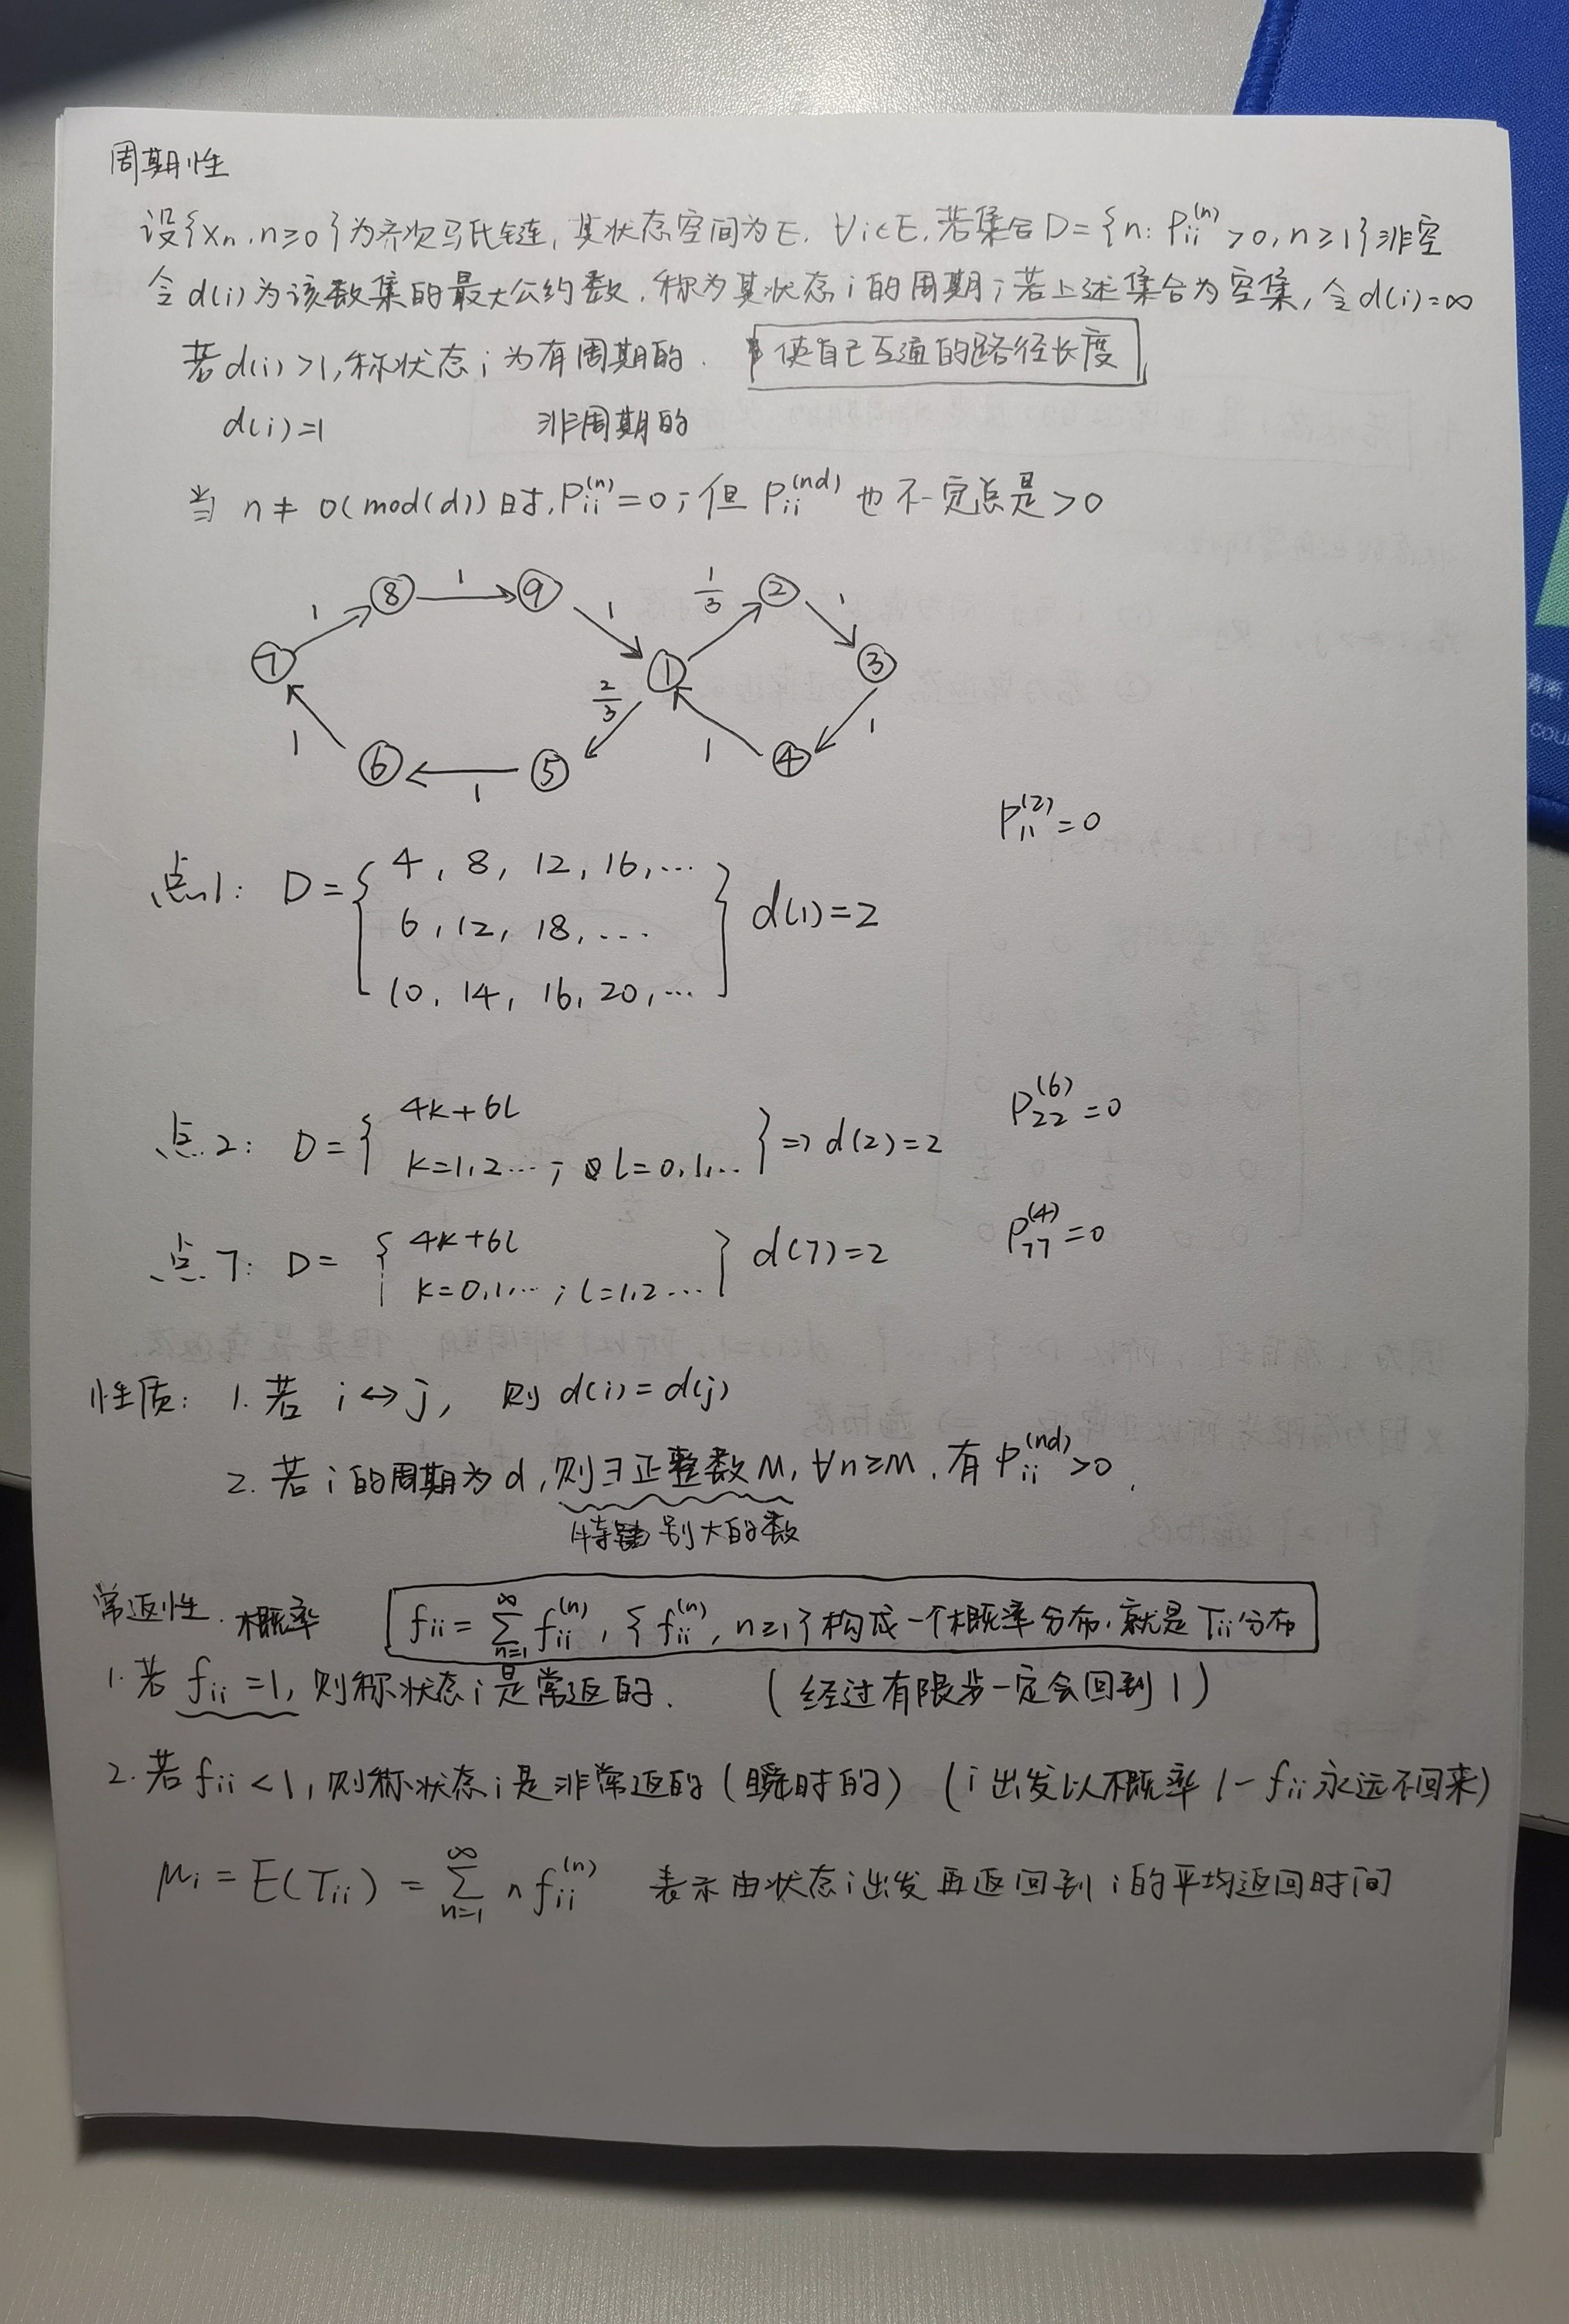 周期性
设{Xn, n≥0}为齐次马氏链, 其状态空间为E, ∀i∈E, 若集合D={n: Pii^(n)>0, n≥1}非空
令d(i)为该数集的最大公约数, 称为其状态i的周期; 若上述集合为空集, 令d(i)=∞
若d(i)>1, 称状态i为有周期的. 使自己互通的路径长度
d(i)=1 非周期的
当 n≠0(mod(d))时, Pii^(n)=0; 但Pii^(nd)也不一定总是>0
⑧ 1 ⑨ 1/3 ②
1 1 1
⑦ ① ③
2/3
1 1 1
⑥ 1 ⑤ ④
P11^(2)=0
点1: D={ 4, 8, 12, 16, ...
6, 12, 18, ... } d(1)=2
10, 14, 16, 20, ...
点2: D={ 4k+6l P22^(6)=0
k=1,2...; l=0,1,... } ⇒ d(2)=2
点7: D={ 4k+6l } d(7)=2 P77^(4)=0
k=0,1,...; l=1,2...
性质: 1. 若 i↔j, 则 d(i)=d(j)
2. 若i的周期为d, 则∃正整数M, ∀n≥M, 有Pii^(nd)>0.
特别大的数
常返性. 概率 fii=∑_{n=1}^{∞} fii^(n), {fii^(n), n≥1}构成一个概率分布, 就是Tii分布
1. 若 fii=1, 则称状态i是常返的. (经过有限步一定会回到1)
2. 若fii<1, 则称状态i是非常返的(瞬时的) (i出发以概率1-fii永远不回来)
μi=E(Tii)=∑_{n=1}^{∞} n fii^(n) 表示由状态i出发再返回到i的平均返回时间
COU